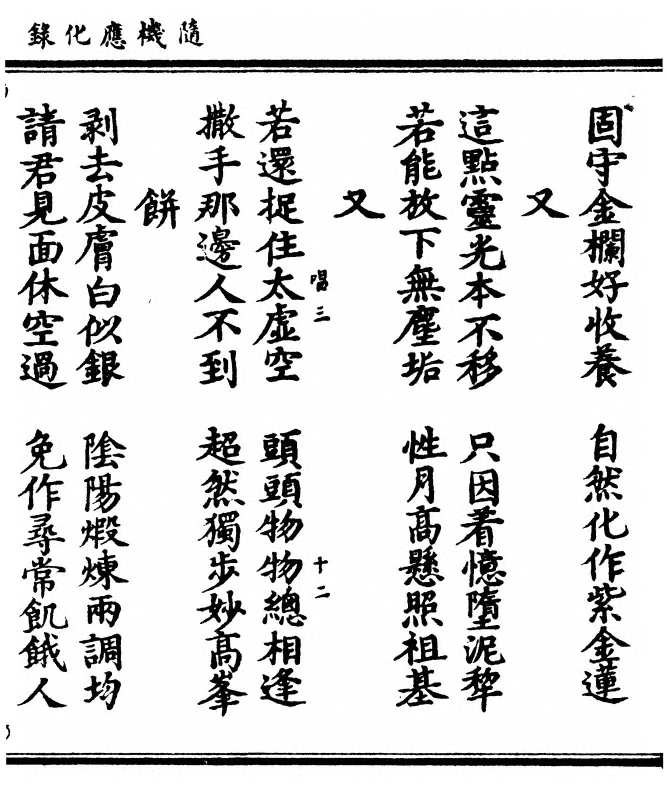 隨機應化錄
固守金欄好收養 自然化作紫金蓮
又
這點靈光本不移 只因着憶墮泥犂
若能放下無塵垢 性月高懸照祖基
又
唱三 十二
若還捉住太虛空 頭頭物物總相逢
撒手那邊人不到 超然獨步妙高峯
餅
剥去皮膚白似銀 陰陽煅煉兩調均
請君見面休空過 免作尋常飢餓人